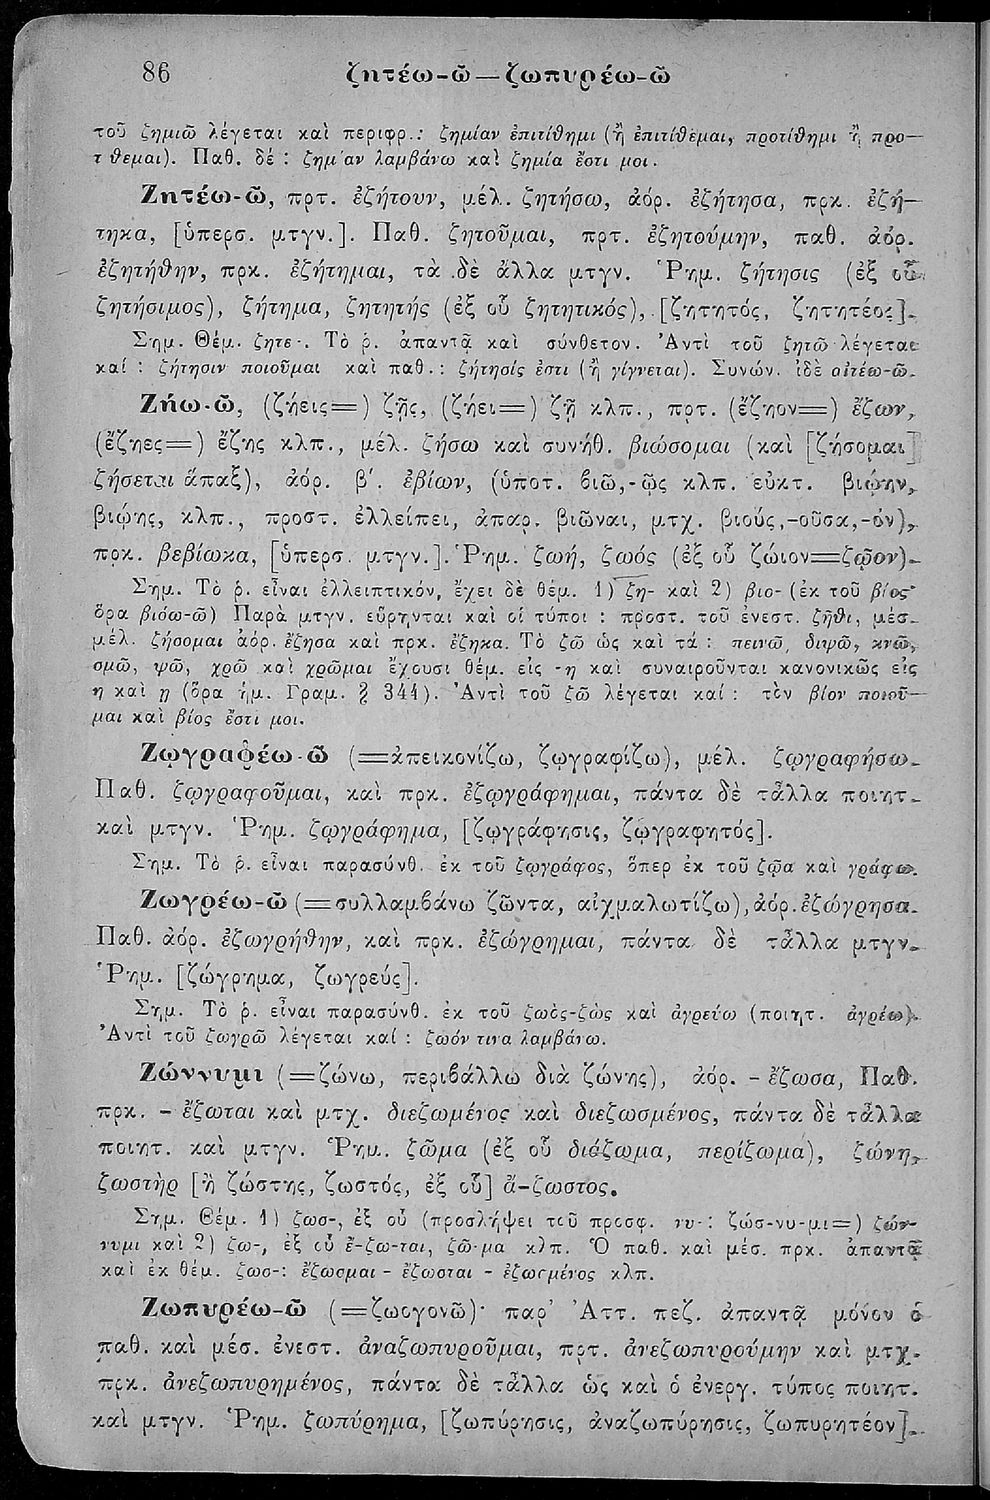 86 ζητέω-ῶ — ζωπυρέω-ῶ
τοῦ ζημιῶ λέγεται καὶ περιφρ.: ζημίαν ἐπιτίθημι (ἢ ἐπιτίθεμαι, προτίθημι ἢ προ—
τ θεμαι). Παθ. δέ : ζημ αν λαμβάνω καὶ ζημία ἔστι μοι.
Ζητέω-ῶ, πρτ. ἐζήτουν, μέλ. ζητήσω, ἀόρ. ἐζήτησα, πρκ. ἐζή—
τηκα, [ὑπερσ. μτγν.]. Παθ. ζητοῦμαι, πρτ. ἐζητούμην, παθ. ἀόρ.
ἐζητήθην, πρκ. ἐζήτημαι, τὰ δὲ ἄλλα μτγν. Ῥημ. ζήτησις (ἐξ οὗ
ζητήσιμος), ζήτημα, ζητητής (ἐξ οὗ ζητητικός), [ζητητός, ζητητέος].
Σημ. Θέμ. ζητε-. Τὸ ῥ. ἀπαντᾷ καὶ σύνθετον. Ἀντὶ τοῦ ζητῶ λέγεται
καί : ζήτησιν ποιοῦμαι καὶ παθ.: ζήτησίς ἐστι (ἢ γίγνεται). Συνών. ἰδὲ αἰτέω-ῶ.
Ζήω-ῶ, (ζήεις=) ζῇς, (ζήει=) ζῇ κλπ., πρτ. (ἔζηον=) ἔζων,
(ἔζηες=) ἔζης κλπ., μέλ. ζήσω καὶ συνήθ. βιώσομαι (καὶ [ζήσομαι]
ζήσεται ἅπαξ), ἀόρ. β΄. ἐβίων, (ὑποτ. βιῶ,-ῷς κλπ. εὐκτ. βιῴην,
βιῴης, κλπ., προστ. ἐλλείπει, ἀπαρ. βιῶναι, μτχ. βιούς,-οῦσα,-όν),
πρκ. βεβίωκα, [ὑπερσ. μτγν.]. Ῥημ. ζωή, ζωός (ἐξ οὗ ζώιον=ζῷον).
Σημ. Τὸ ῥ. εἶναι ἐλλειπτικόν, ἔχει δὲ θέμ. 1) ζη- καὶ 2) βιο- (ἐκ τοῦ βίος·
ὅρα βιόω-ῶ) Παρὰ μτγν. εὕρηνται καὶ οἱ τύποι : προστ. τοῦ ἐνεστ. ζῆθι, μέσ.
μέλ. ζήσομαι ἀόρ. ἔζησα καὶ πρκ. ἔζηκα. Τὸ ζῶ ὡς καὶ τά : πεινῶ, διψῶ, κνῶ,
σμῶ, ψῶ, χρῶ καὶ χρῶμαι ἔχουσι θέμ. εἰς -η καὶ συναιροῦνται κανονικῶς εἰς
η καὶ ῃ (ὅρα ἡμ. Γραμ. § 344). Ἀντὶ τοῦ ζῶ λέγεται καί : τὸν βίον ποιοῦ—
μαι καὶ βίος ἔστι μοι.
Ζωγραφέω-ῶ (=ἀπεικονίζω, ζωγραφίζω), μέλ. ζῳγραφήσω.
Παθ. ζῳγραφοῦμαι, καὶ πρκ. ἐζῳγράφημαι, πάντα δὲ τἆλλα ποιητ.
καὶ μτγν. Ῥημ. ζῳγράφημα, [ζῳγράφησις, ζῳγραφητός].
Σημ. Τὸ ῥ. εἶναι παρασύνθ. ἐκ τοῦ ζῳγράφος, ὅπερ ἐκ τοῦ ζῷα καὶ γράφω.
Ζωγρέω-ῶ (=συλλαμβάνω ζῶντα, αἰχμαλωτίζω), ἀόρ. ἐζώγρησα.
Παθ. ἀόρ. ἐζωγρήθην, καὶ πρκ. ἐζώγρημαι, πάντα δὲ τἆλλα μτγν.
Ῥημ. [ζώγρημα, ζωγρεύς].
Σημ. Τὸ ῥ. εἶναι παρασύνθ. ἐκ τοῦ ζωὸς-ζὼς καὶ ἀγρεύω (ποιητ. ἀγρέω).
Ἀντὶ τοῦ ζωγρῶ λέγεται καί : ζωόν τινα λαμβάνω.
Ζώννυμι (=ζώνω, περιβάλλω διὰ ζώνης), ἀόρ. - ἔζωσα, Παθ.
πρκ. - ἔζωται καὶ μτχ. διεζωμένος καὶ διεζωσμένος, πάντα δὲ τἆλλα
ποιητ. καὶ μτγν. Ῥημ. ζῶμα (ἐξ οὗ διάζωμα, περίζωμα), ζώνη,
ζωστὴρ [ἢ ζώστης, ζωστός, ἐξ οὗ] ἄ-ζωστος.
Σημ. Θέμ. 1) ζωσ-, ἐξ οὗ (προσλήψει τοῦ προσφ. νυ-: ζώσ-νυ-μι=) ζών-
νυμι καὶ 2) ζω-, ἐξ οὗ ἔ-ζω-ται, ζῶ-μα κλπ. Ὁ παθ. καὶ μέσ. πρκ. ἀπαντᾷ
καὶ ἐκ θέμ. ζωσ-: ἔζωσμαι - ἔζωσται - ἐζωσμένος κλπ.
Ζωπυρέω-ῶ (=ζωογονῶ)· παρ' Ἀττ. πεζ. ἀπαντᾷ μόνον ὁ
παθ. καὶ μέσ. ἐνεστ. ἀναζωπυροῦμαι, πρτ. ἀνεζωπυρούμην καὶ μτχ.
πρκ. ἀνεζωπυρημένος, πάντα δὲ τἆλλα ὡς καὶ ὁ ἐνεργ. τύπος ποιητ.
καὶ μτγν. Ῥημ. ζωπύρημα, [ζωπύρησις, ἀναζωπύρησις, ζωπυρητέον].